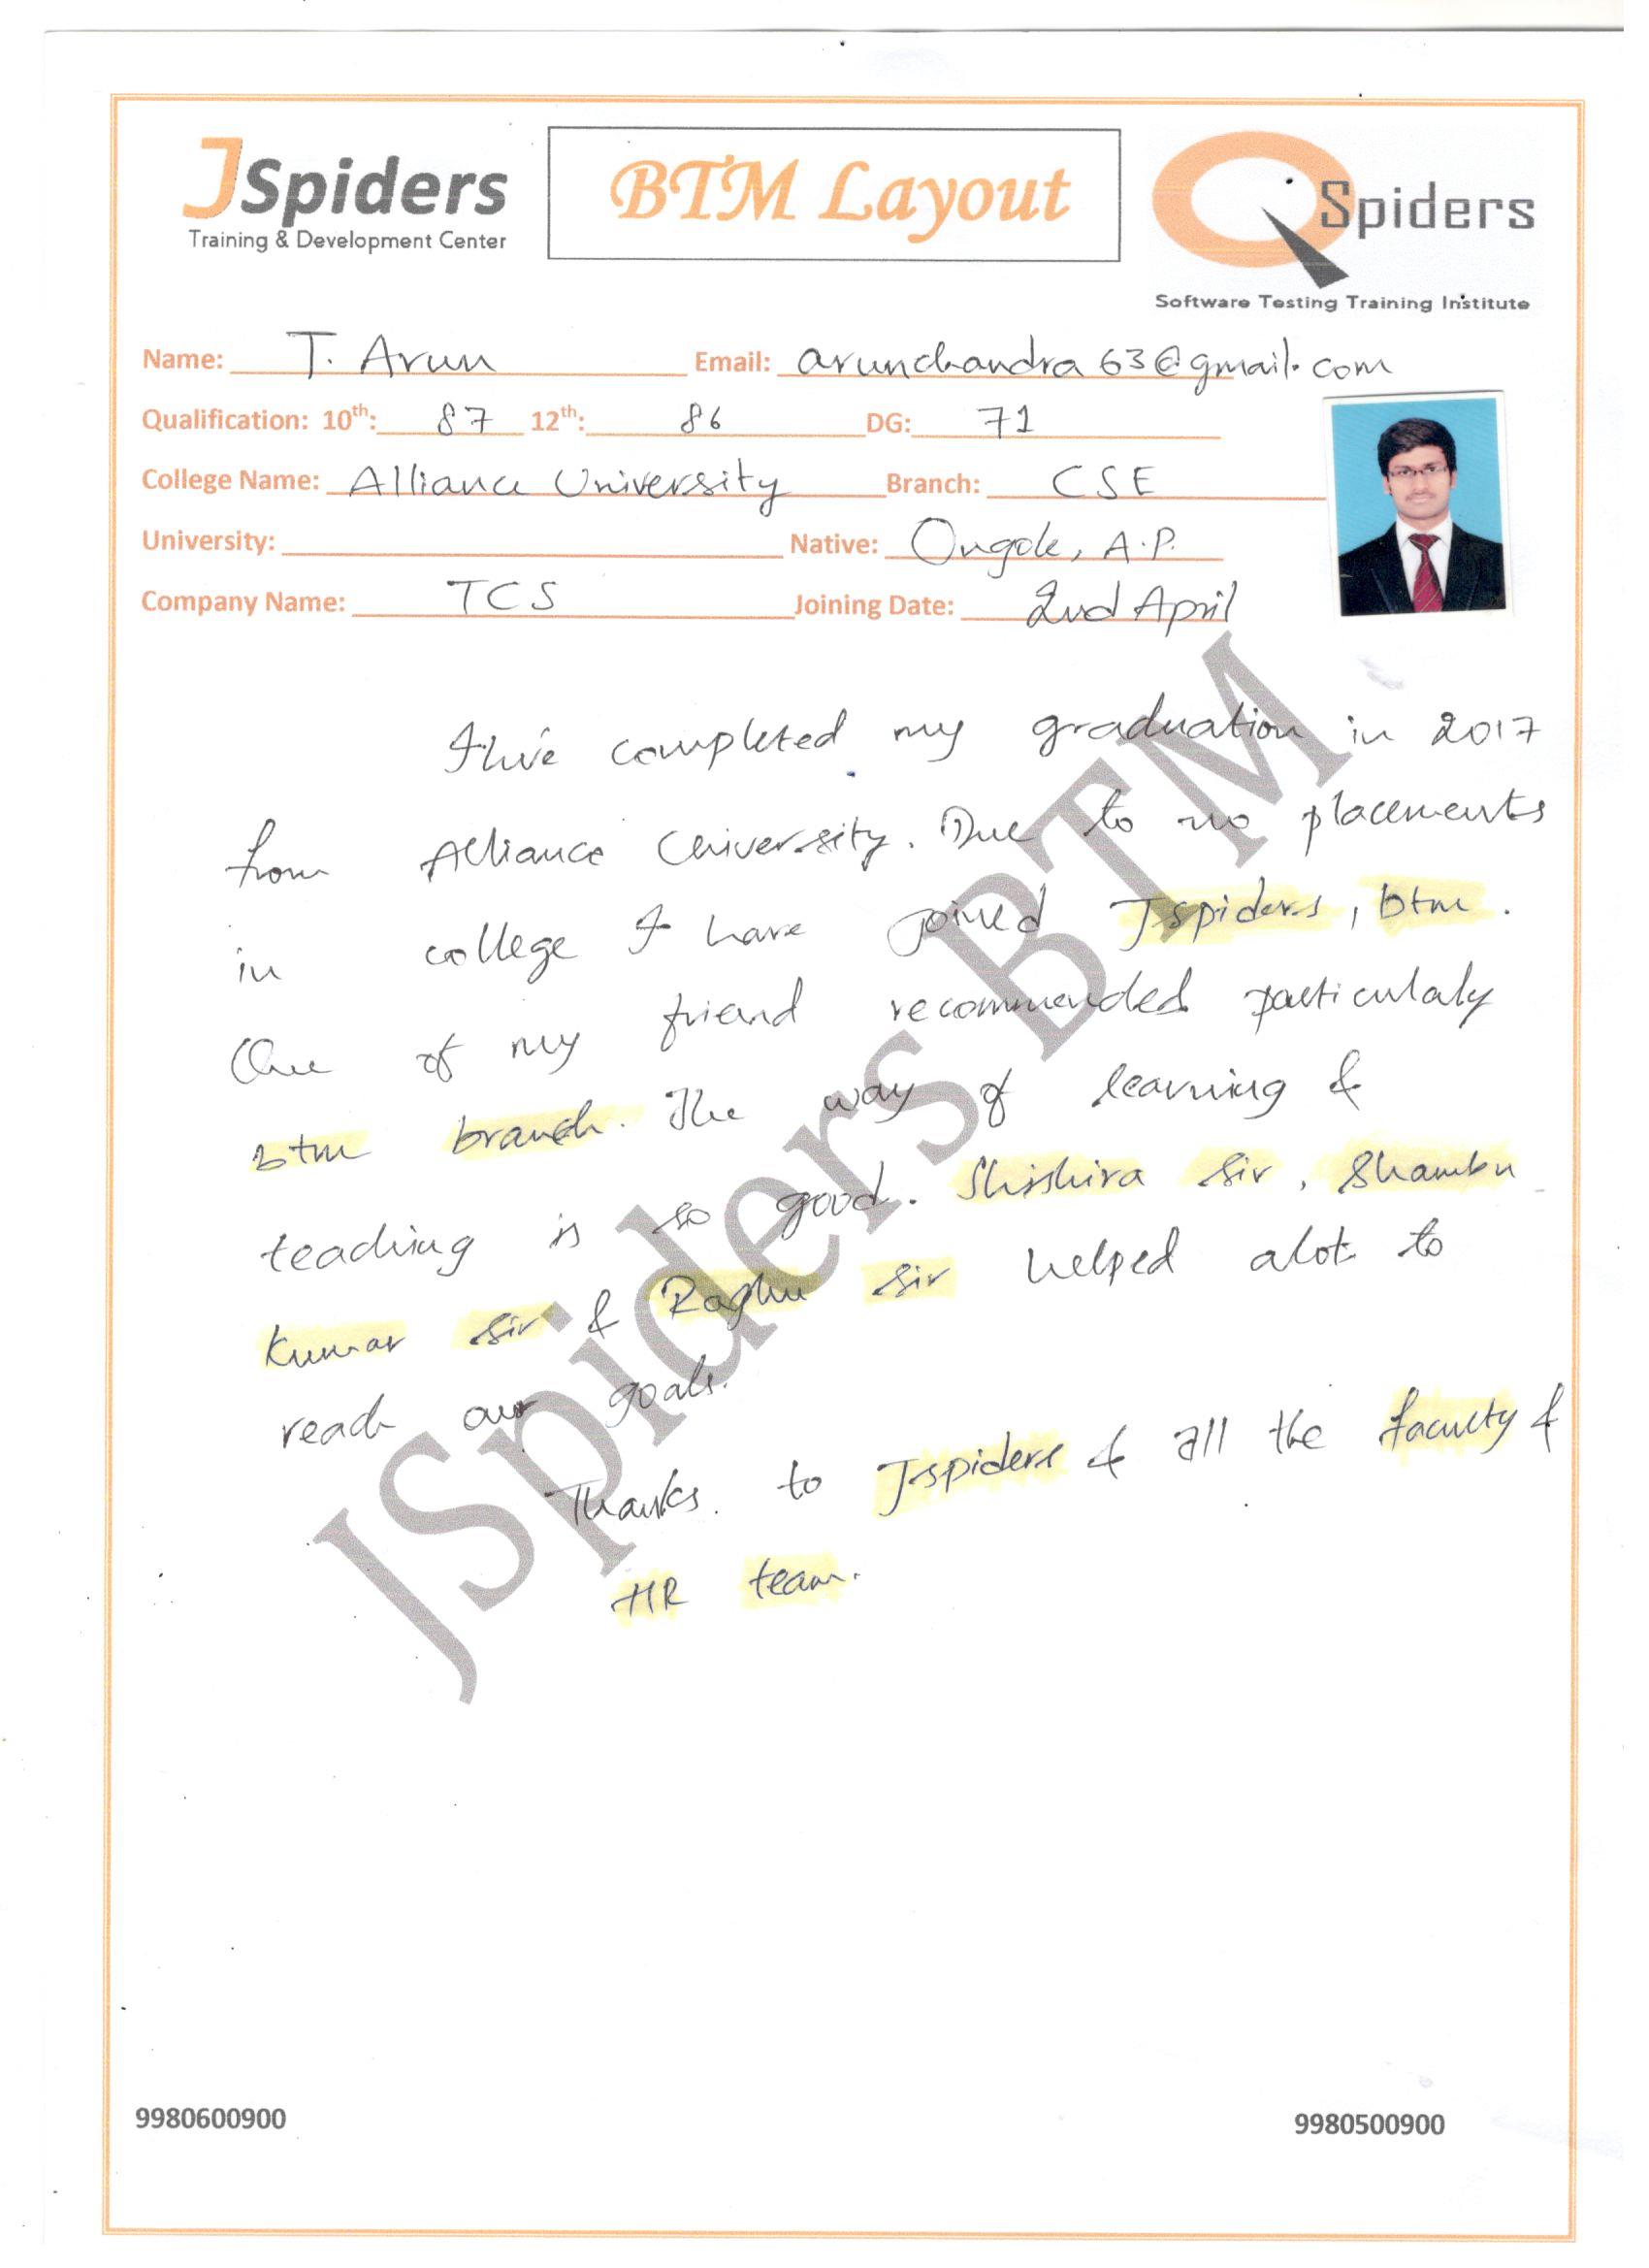 JSpiders
Training & Development Center
BTM Layout
QSpiders
Software Testing Training Institute
Name: T. Arun Email: arunchandra63@gmail.com
Qualification: 10th: 87 12th: 86 DG: 71
College Name: Alliance University Branch: CSE
University: Native: Ongole, A.P.
Company Name: TCS Joining Date: 2nd April
I've completed my graduation in 2017
from Alliance University. Due to no placements
in college I have joined Jspiders, btm.
One of my friend recommended particulaly
btm branch. The way of learning &
teaching is so good. Shishira sir, Shambu
Kumar sir & Raghu sir helped alot to
reach our goals.
Thanks. to Jspiders & all the faculty &
HR team.
JSpiders BTM
9980600900 9980500900